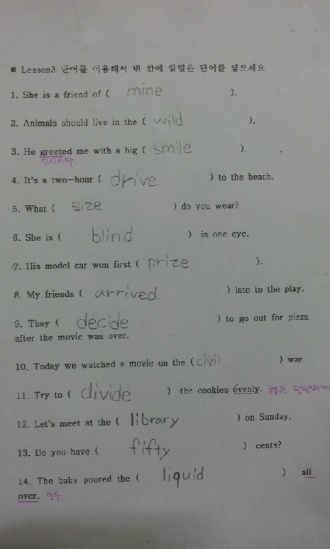 ■ Lesson3 단어를 이용해서 빈 칸에 알맞은 단어를 넣으세요
1. She is a friend of ( mine ).
2. Animals should live in the ( wild ).
3. He greeted me with a big ( smile ).
4. It's a two-hour ( drive ) to the beach.
5. What ( size ) do you wear?
6. She is ( blind ) in one eye.
7. His model car won first ( prize ).
8. My friends ( arrived ) late to the play.
9. They ( decide ) to go out for pizza
after the movie was over.
10. Today we watched a movie on the ( civil ) war.
11. Try to ( divide ) the cookies evenly.
12. Let's meet at the ( library ) on Sunday.
13. Do you have ( fifty ) cents?
14. The baby poured the ( liquid ) all
over.